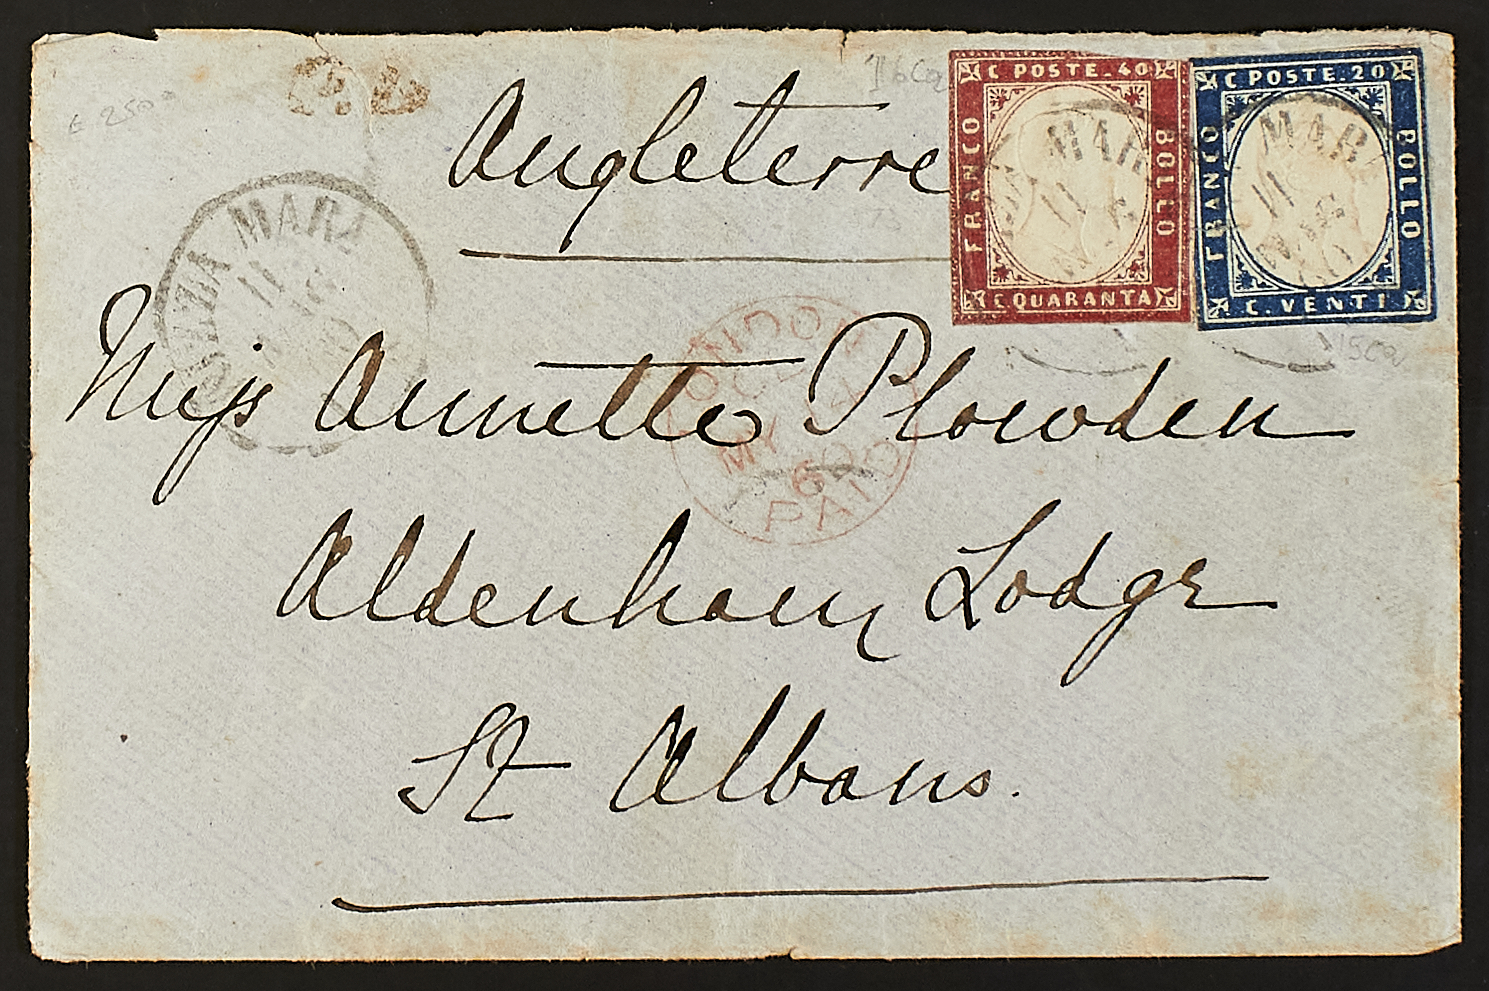 P.D.
Angleterre
C POSTE. 40
FRANCO
BOLLO
C. QUARANTA
C POSTE. 20
FRANCO
BOLLO
C. VENTI
MAR
11
MAR
11
60
MAR
11
LONDON
MY 14
60
PAID
Miss Annette Plowden
Aldenham Lodge
St Albans.